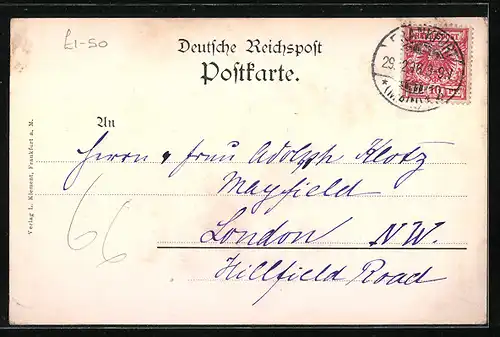 £1-50
Deutsche Reichspost
Postkarte.
FRANKFURT
An
Herrn & Frau Adolph Klotz
Mayfield
London NW.
Hillfield Road
66
Verlag L. Klement, Frankfurt a. M.